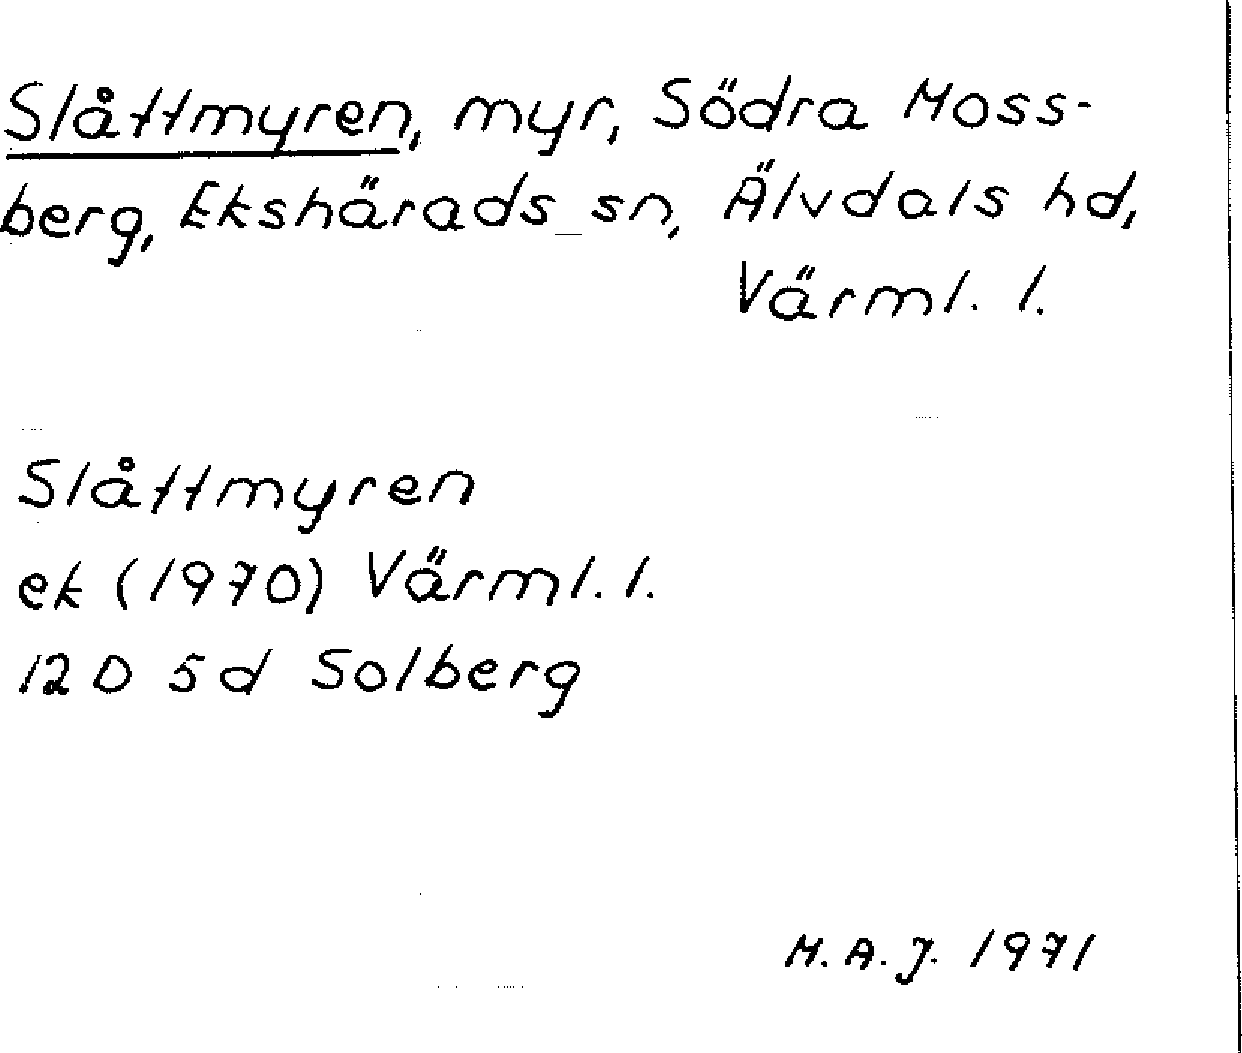 Slåttmyren, myr, Södra Moss-
berg, Ekshärads sn, Älvdals hd,
Värml. l.
Slåttmyren
ek (1970) Värml. l.
12 D 5d Solberg
M. A. J. 1971